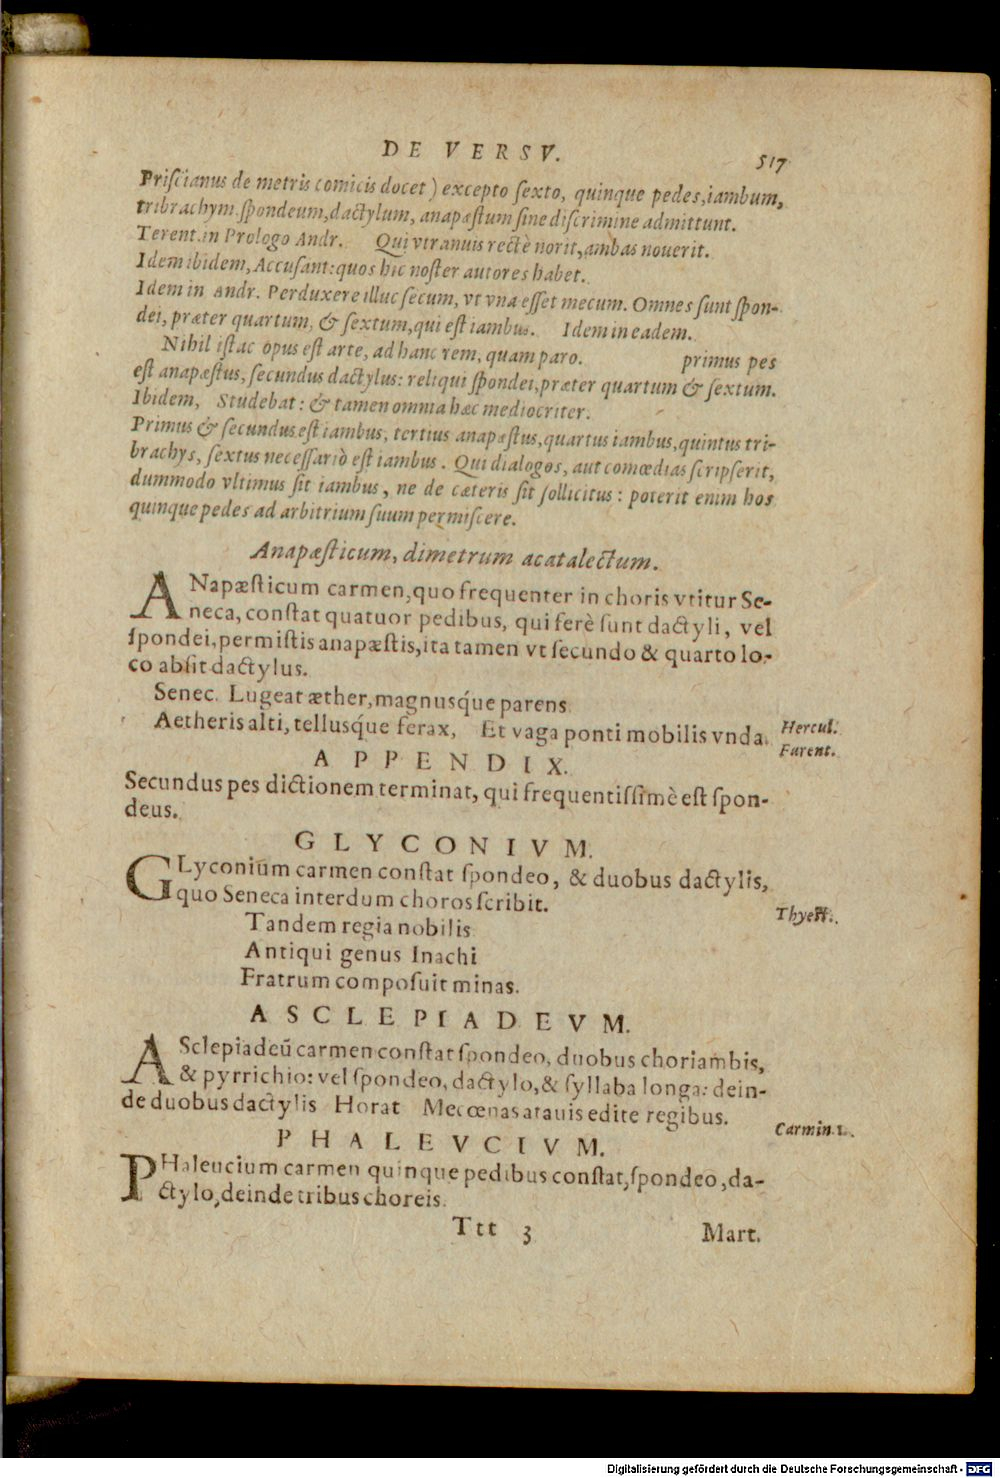 DE VERSV.
517
Priſcianus de metris comicis docet) excepto ſexto, quinque pedes, iambum,
tribrachym, ſpondeum, dactylum, anapæſtum ſine diſcrimine admittunt.
Terent. in Prologo Andr. Qui vtranuis rectè norit, ambas nouerit.
Idem ibidem, Accuſant: quos hic noſter autores habet.
Idem in Andr. Perduxere illuc ſecum, vt vna eſſet mecum. Omnes ſunt ſpon-
dei, præter quartum, & ſextum, qui eſt iambus. Idem in eadem.
Nihil iſtac opus eſt arte, ad hanc rem, quam paro. primus pes
eſt anapæſtus, ſecundus dactylus: reliqui ſpondei, præter quartum & ſextum.
Ibidem, Studebat: & tamen omnia hæc mediocriter.
Primus & ſecundus eſt iambus, tertius anapæſtus, quartus iambus, quintus tri-
brachys, ſextus neceſſariò eſt iambus. Qui dialogos, aut comœdias ſcripſerit,
dummodo vltimus ſit iambus, ne de cæteris ſit ſollicitus: poterit enim hos
quinque pedes ad arbitrium ſuum permiſcere.
Anapæſticum, dimetrum acatalectum.
ANapæſticum carmen, quo frequenter in choris vtitur Se-
neca, conſtat quatuor pedibus, qui ferè ſunt dactyli, vel
ſpondei, permiſtis anapæſtis, ita tamen vt ſecundo & quarto lo-
co abſit dactylus.
Senec. Lugeat æther, magnusq́ue parens
Aetheris alti, tellusq́ue ferax, Et vaga ponti mobilis vnda.
Hercul.
Furent.
APPENDIX.
Secundus pes dictionem terminat, qui frequentiſſimè eſt ſpon-
deus.
GLYCONIVM.
GLyconium carmen conſtat ſpondeo, & duobus dactylis,
quo Seneca interdum choros ſcribit.
Thyeſt.
Tandem regia nobilis
Antiqui genus Inachi
Fratrum compoſuit minas.
ASCLEPIADEVM.
ASclepiadeū carmen conſtat ſpondeo, duobus choriambis,
& pyrrichio: vel ſpondeo, dactylo, & ſyllaba longa: dein-
de duobus dactylis Horat Mecœnas atauis edite regibus.
Carmin. 1.
PHALEVCIVM.
PHaleucium carmen quinque pedibus conſtat, ſpondeo, da-
ctylo, deinde tribus choreis.
Ttt 3
Mart.
Digitalisierung gefördert durch die Deutsche Forschungsgemeinschaft - DFG